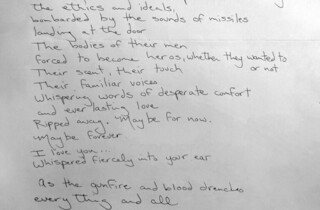 the ethics and ideals,
bombarded by the sounds of missiles
landing at the door
The bodies of their men
forced to become heros, whether they wanted to
or not
Their scent, their touch
Their familiar voices
Whispering words of desperate comfort
and everlasting love
Ripped away. Maybe for now.
Maybe forever
I love you...
Whispered fiercely into your ear
As the gunfire and blood drenches
every thing and all